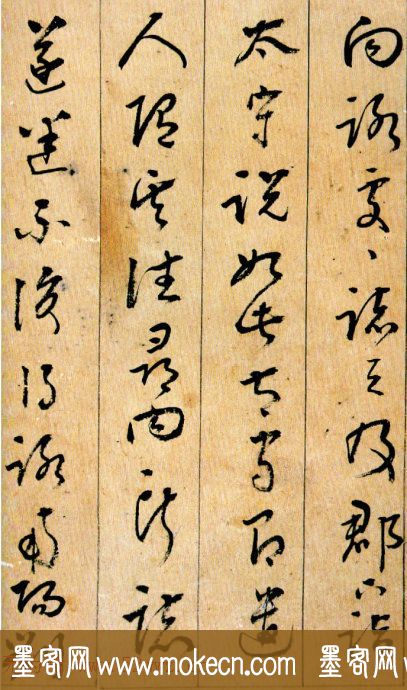 向路處々誌之及郡下詣
太守說如此太守即遣
人隨其往尋向所誌
遂迷不復得路南陽
墨客网 www.mokecn.com 墨客网